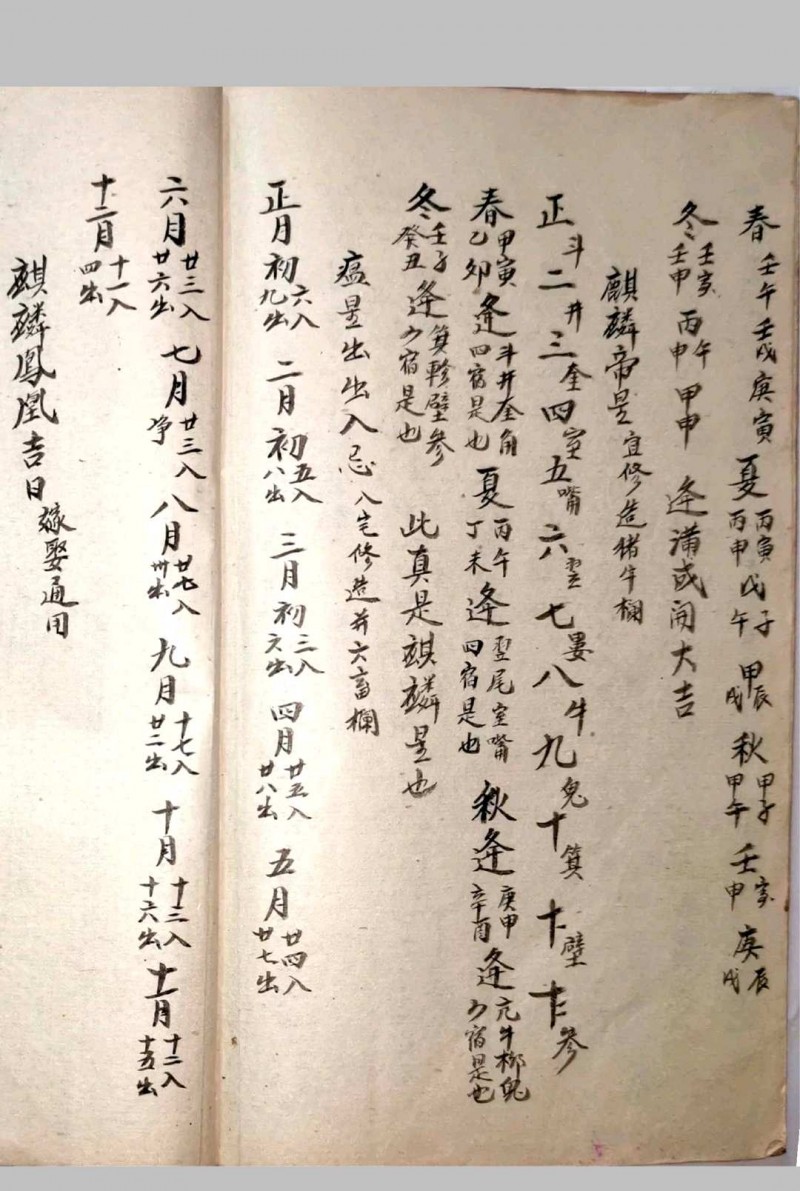 春壬午壬戌庚寅夏丙寅丙申戊子午甲辰戌秋甲子甲午壬寅申庚辰戌
冬壬寅壬申丙午申甲申逄满或闬大吉
麒麟帝星宜修造猪牛欄
正斗二井三奎四室五嘴六翌七晏八牛九鬼十箕十壁十参
春甲寅乙夘逄斗井奎角四宿是也夏丙午丁未逄翌尾室嘴四宿是也秋逄庚申辛酉逄亢牛柳鬼宿是也
冬壬子癸丑逄箕軫壁參宿是也此真是麒麟星也
瘟星出出入忌入宅修造并六畜欄
正月初六入九出二月初五入八出三月初三入六出四月廿五入廿八出五月廿四入廿七出
六月廿三入廿六出七月廿三入净八月廿七入卅出九月十七入廿二出十月十三入十六出十一月十二入十五出
十二月十一入四出
麒麟鳳凰吉日嫁娶通用